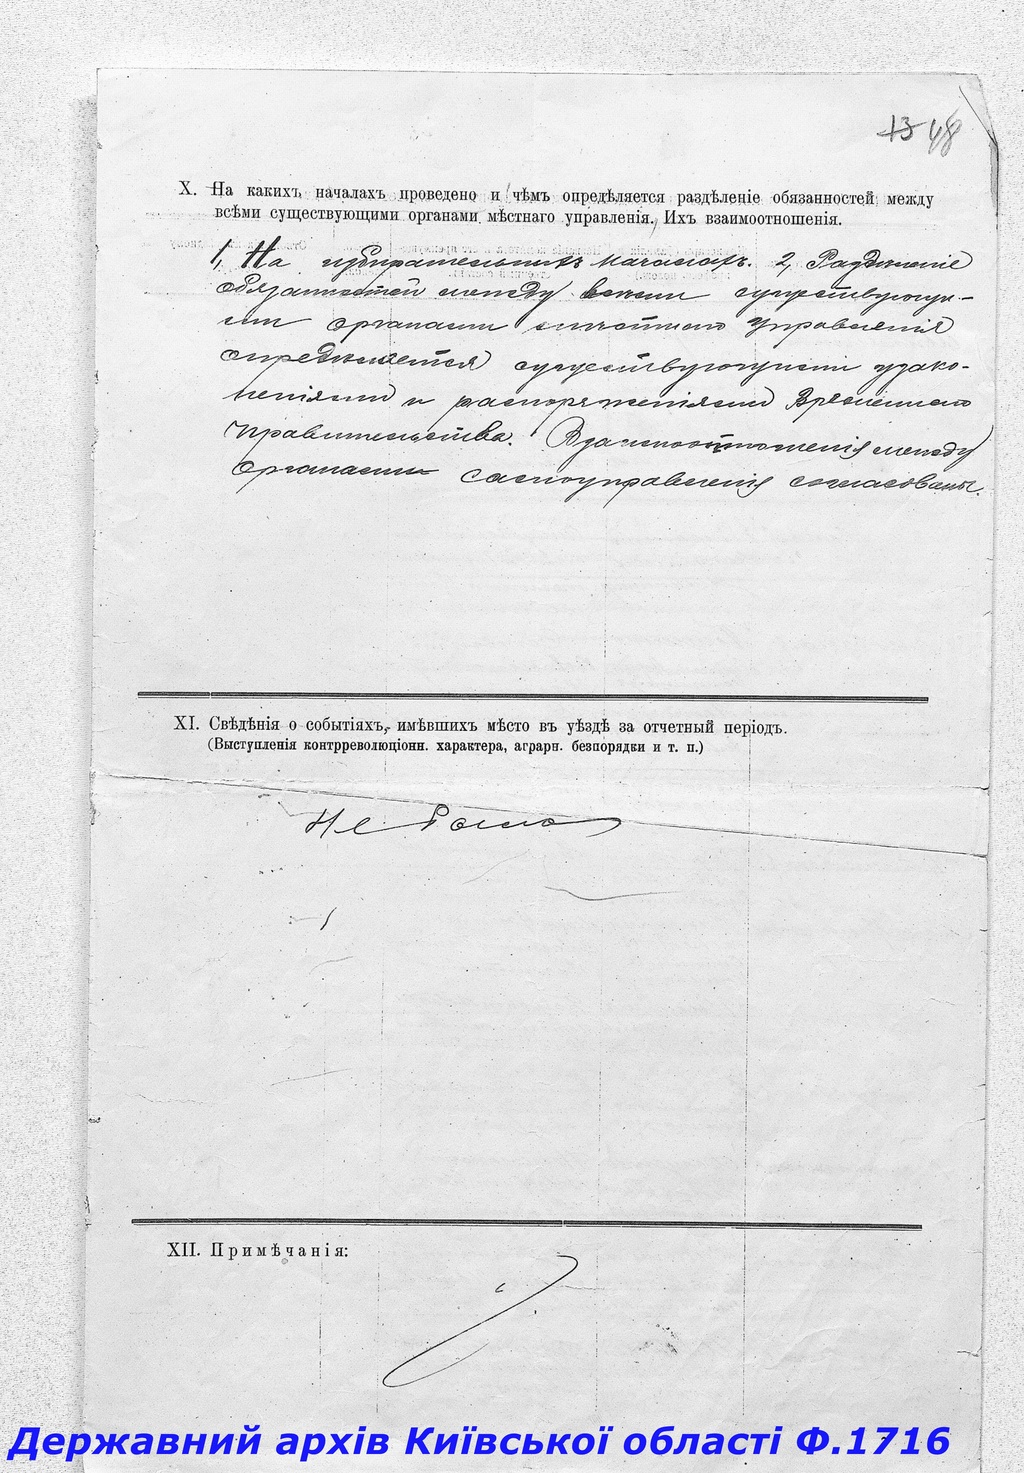 13 48
X. На какихъ началахъ проведено и чѣмъ опредѣляется раздѣленіе обязанностей между
всѣми существующими органами мѣстнаго управленія. Ихъ взаимоотношенія.
1, На избирательныхъ началахъ. 2, Раздѣленіе
обязанностей между всѣми существующи-
ми органами мѣстнаго управленія
опредѣляется существующими узако-
неніями и распоряженіями Временнаго
Правительства. Взаимоотношенія между
органами самоуправленія согласованы.
XI. Свѣдѣнія о событіяхъ, имѣвшихъ мѣсто въ уѣздѣ за отчетный періодъ.
(Выступленія контрреволюціонн. характера, аграрн. безпорядки и т. п.)
Не было
XII. Примѣчанія:
Державний архів Київської області Ф.1716